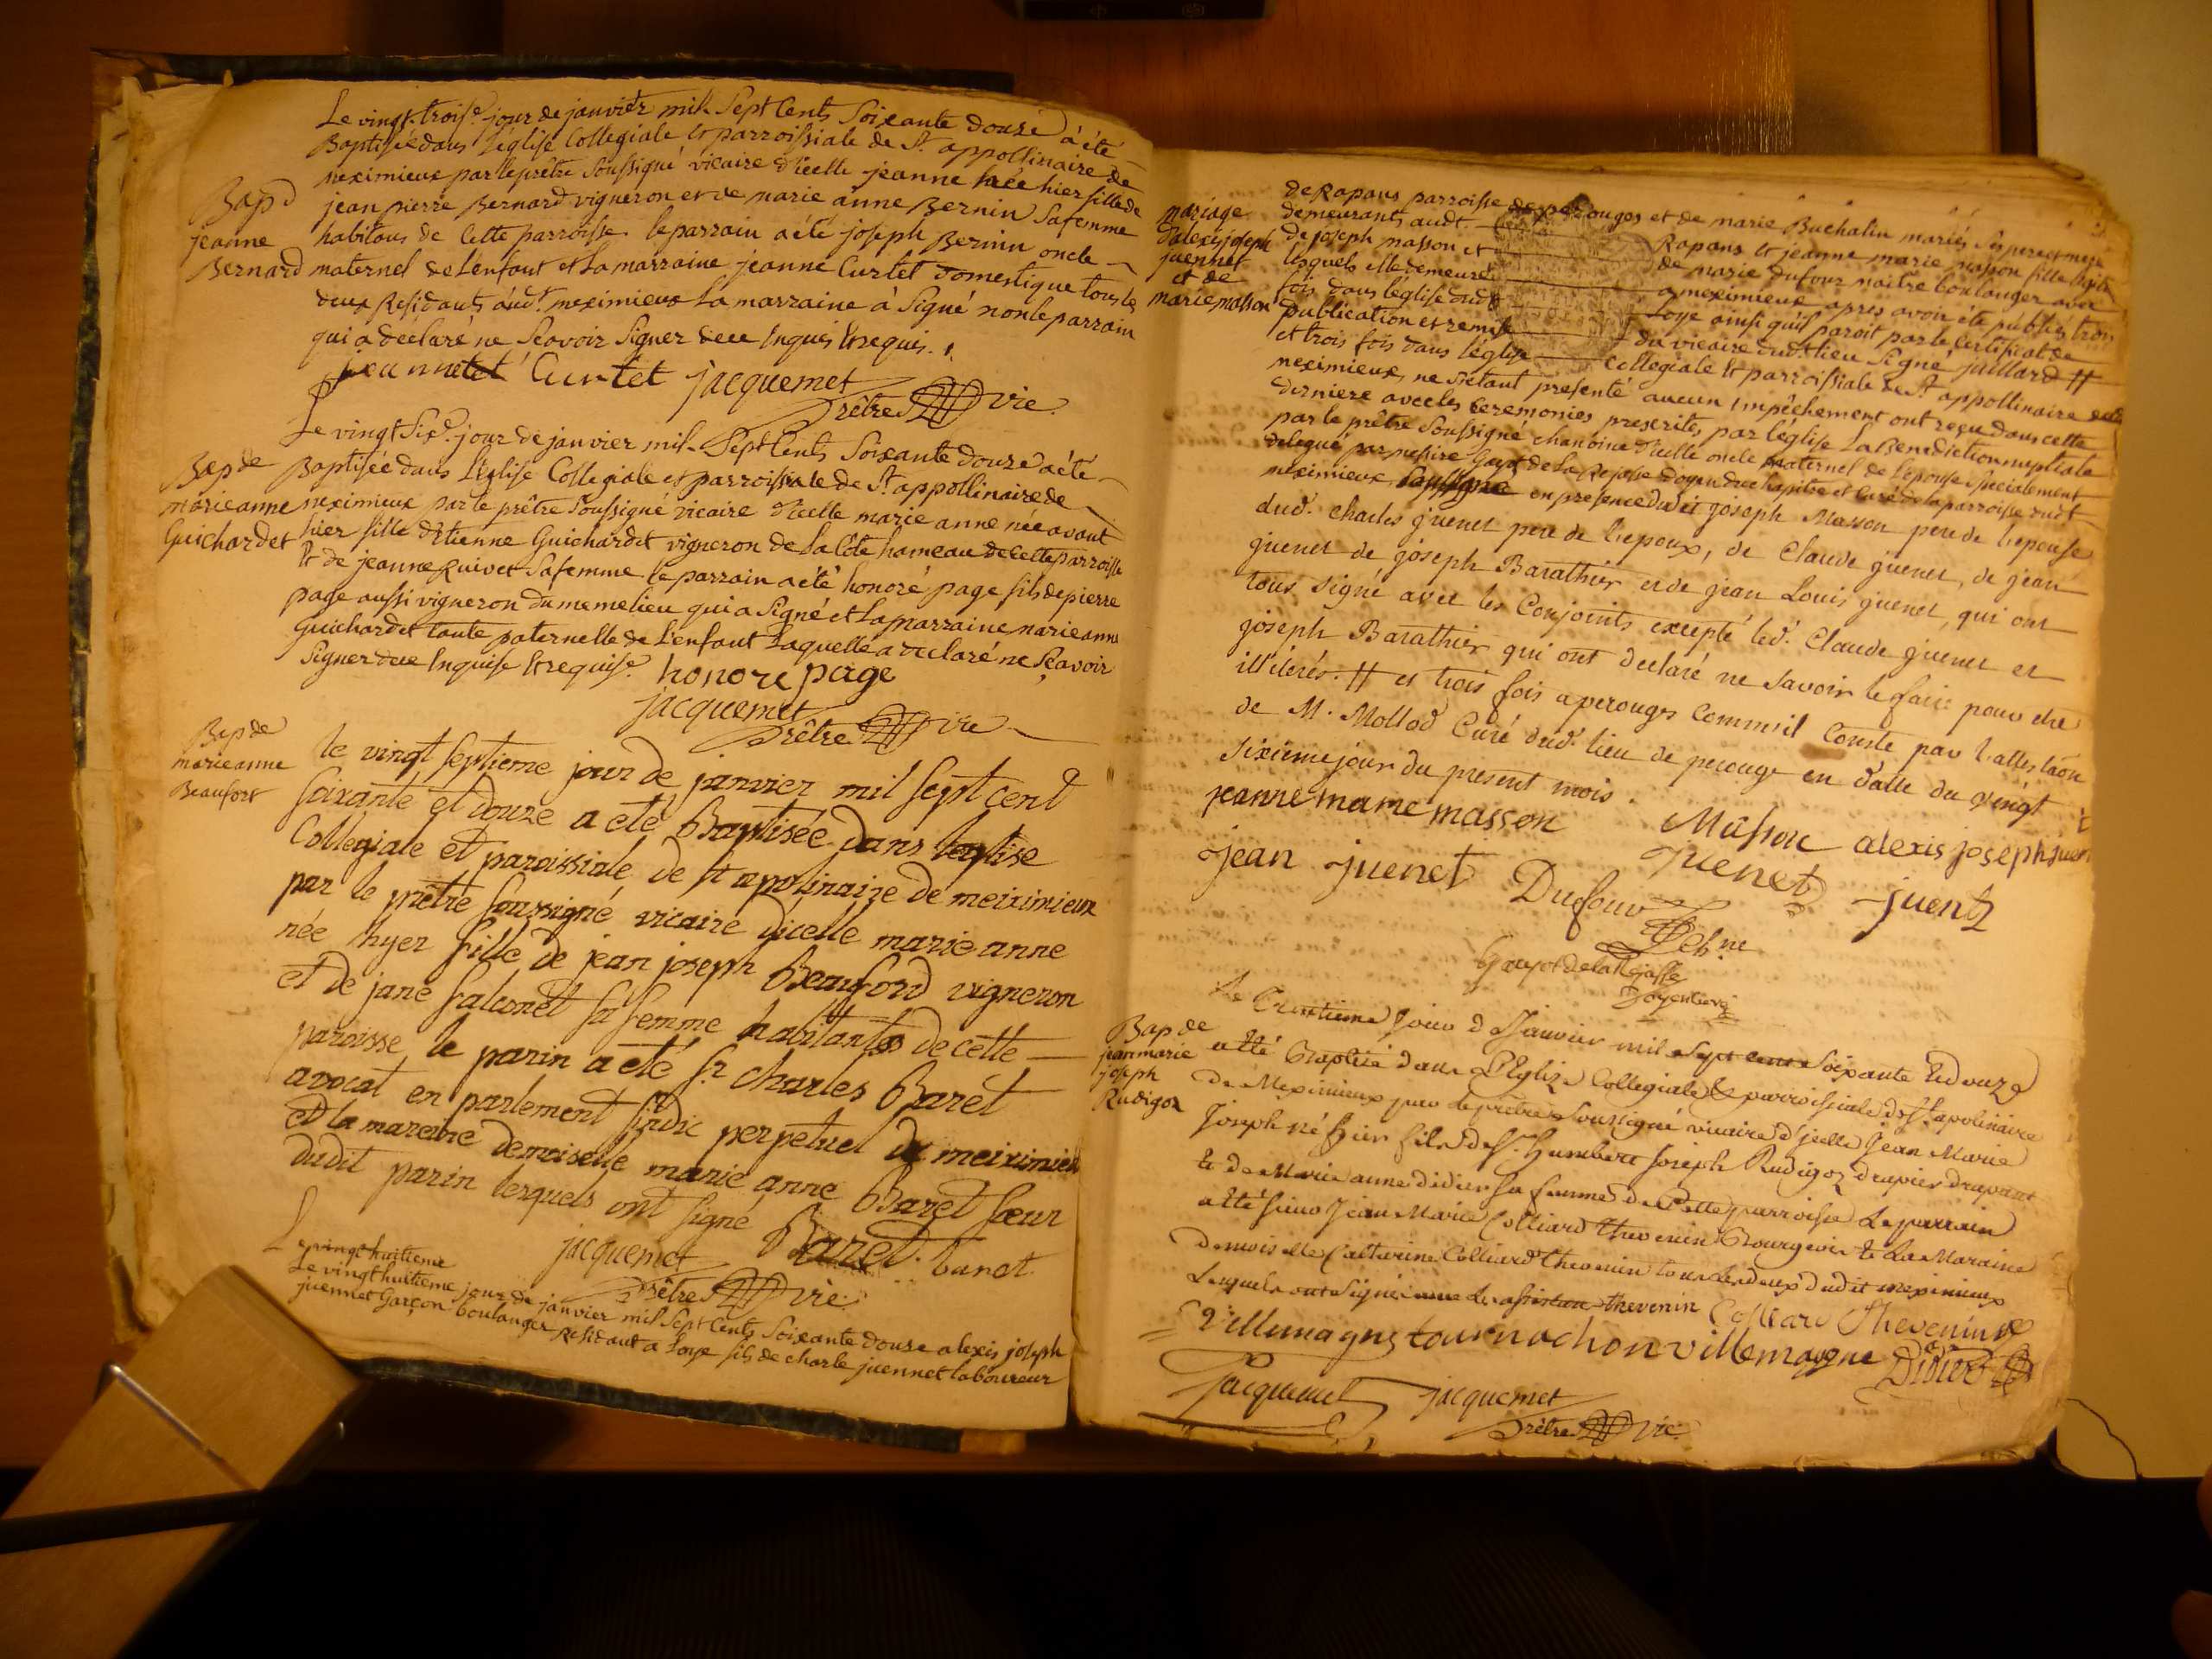 Le vingt troise. jour de janvier mil Sept Cents Soixante douze à été
Baptisée dans l'église Collegiale et parroissiale de St. appollinaire de
meximieux par le prêtre Soussigné vicaire d'icelle jeanne née hier fille de
Bap d
jeanne
Bernard
jean pierre Bernard vigneron et de marie anne Bernin Safemme
habitans de Cette parroisse. le parrain a été joseph Bernin oncle
maternel de L'enfant et La marraine jeanne Curtet Domestique tous les
deux Residants audt. meximieux La marraine à Signé non le parrain
qui a déclaré ne Scavoir Signer de ce Inquis et requis.
jeannetet Curtet jacquemet
Prêtre vic
Le vingt Sixe. jour de janvier mil Sept Cents Soixante douze a été
Bap de
marie anne
Guichardet
Baptisée dans L'église Collegiale et parroissiale de St. appollinaire de
meximieux par le prêtre Soussigné vicaire d'icelle marie anne née avant
hier fille d'Etienne Guichardet vigneron de La Côte hameau de cette parroisse
et de jeanne Quivet Safemme le parrain a été honoré page fils de pierre
page aussi vigneron du meme lieu qui a Signé et La marraine marie anne
Guichardet tante paternelle de L'enfant Laquelle a declaré ne Sçavoir
Signer de ce Inquise et requise. honore page
jacquemet
Prêtre vic
Bap de
marie anne
Beaufort
le vingt septieme jour de janvier mil sept cent
soixante et douze a eté Baptisée dans leglise
Collegiale et paroissiale de st apolinaire de meiximieux
par le prêtre soussigné vicaire dicelle marie anne
née hyer fille de jean joseph Beauford vigneron
et de jane falconet sa femme habitants de cette
paroisse, le parin a eté sr. charles Baret
avocat en parlement sindic perpetuel de meiximieu
et la mareine demoiselle marie anne Baret sœur
dudit parin lesquels ont signé Baret. baret
jacquemet
Prêtre vic
Le vingt huitieme
Le vingt huitieme jour de janvier mil Sept Cents Soixante douze alexis joseph
juennet Garçon boulanger Residant a Loye fils de charle juennet laboureur
mariage
d'alexis joseph
juennet
et de
marie masson
de Rapans parroisse de perouges et de marie Buchalin mariés Ses pere et mere
demeurants audt. Rapans et jeanne marie masson fille
de joseph masson et de marie dufour maitre boulanger avec
lesquels elle demeure a meximieux apres avoir été publiés trois
fois dans leglise dud Loye ainsi qu'il paroit par le Certificat de
publication et remise du vicaire dudt lieu Signé juillard #
et trois fois dans l'église Collegiale et parroissiale de St. appollinaire
meximieux, ne s'étant presenté aucun Impêchement ont reçu dans cette
derniere avec les Ceremonies prescrites par l'église La Benediction nuptiale
par le prêtre Soussigné chanoine d'icelle oncle maternel de l'epouse Specialement
delegué par messire Goyot de La Rejasse doyen du chapitre et Curé de la parroisse dudt
meximieux en presence dudit joseph Masson pere de L'epouse
dud. charles juenet pere de L'epoux, de Claude juenet, de jean
juenet de joseph Barathier et de jean Louis juenet, qui ont
tous signé avec les Conjoints excepté led. Claude juenet et
joseph Barathier qui ont declaré ne savoir le faire pour etre
illiterés. # et trois fois a perouges Comme il Conste par l'attestaon
de M. Mollod Curé dud. lieu de perouge en datte du vingt
sixieme jour du present mois.
jeanne marie masson Masson alexis joseph juen
jean juenet juenet juenet
Dufour
Ch.ne
Goyot de la Rejasse
Doyen curé
Bap de
jean marie
joseph
Rudigoz
Le Trentieme jour de Janvier mil sept cent soixante et douze
a été Baptisé dans L'Eglize Collegiale & parroissiale de St. apolinaire
de Meximieux par le prêtre soussigné vicaire d'jcelle Jean Marie
Joseph né hier fils de Sr. Humbert Joseph Rudigoz drapier drapant
& de Marie anne didier sa femme de Cette parroisse Le parrain
a été sieur Jean Marie Colliard thevenin Bourgeois & La Maraine
demoiselle Catherine Colliard thevenin tous Les deux dudit meximieux
Lesquels ont signé thevenin Colliard Thevenin
Villemagne tournachon villemagne Didier
Jacquemet jacquemet
Prêtre vic